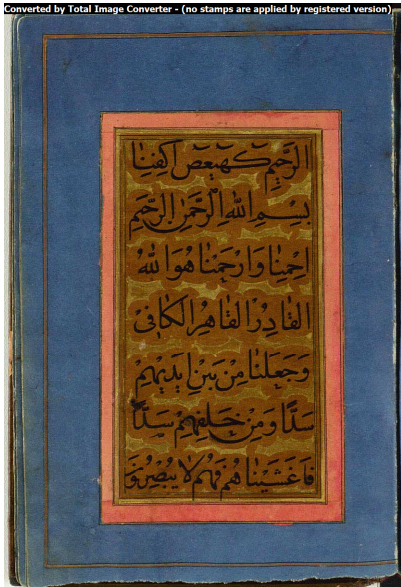 Converted by Total Image Converter - (no stamps are applied by registered version)
الرَّحِيمِ كٓهيعٓصٓ اكْفِنَا
بِسْمِ اللّٰهِ الرَّحْمٰنِ الرَّحِيمِ
احْمِنَا وَارْحَمْنَا هُوَ اللّٰهُ
القَادِرُ القَاهِرُ الكَافِى
وَجَعَلْنَا مِنْ بَيْنِ اَيْدِيهِمْ
سَدًّا وَمِنْ خَلْفِهِمْ سَدًّا
فَاَغْشَيْنَا هُمْ فَهُمْ لَا يُبْصِرُونَ